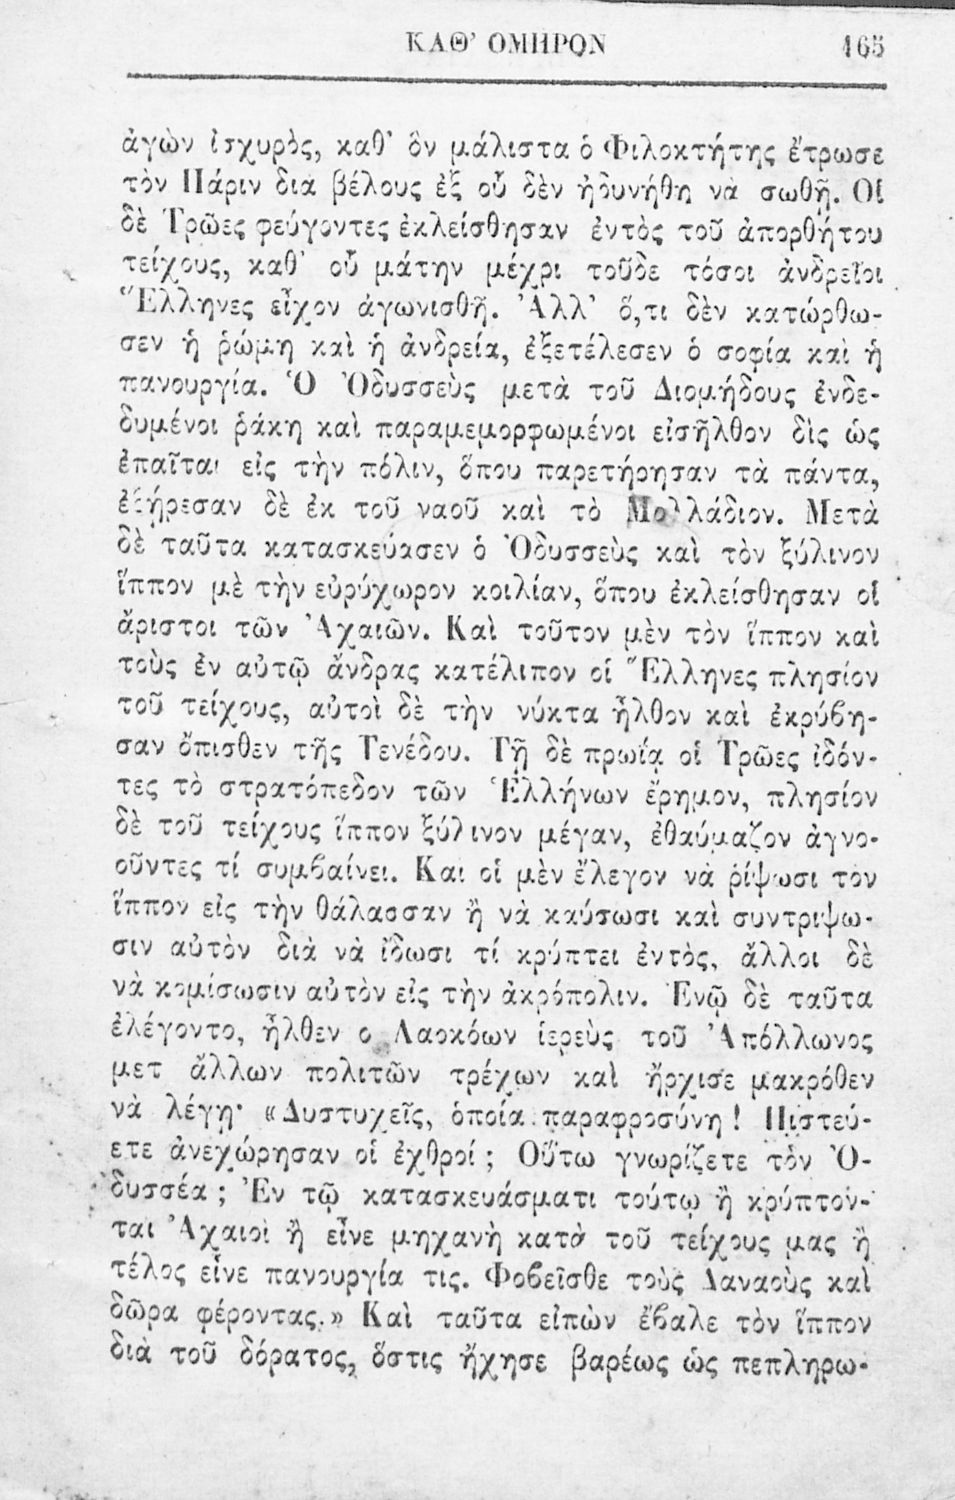 ΚΑΘ’ ΟΜΗΡΟΝ 165
ἀγὼν ἰσχυρὸς, καθ’ ὃν μάλιστα ὁ Φιλοκτήτης ἔτρωσε
τὸν Πάριν διὰ βέλους ἐξ οὗ δὲν ἠδυνήθη νὰ σωθῇ. Οἱ
δὲ Τρῶες φεύγοντες ἐκλείσθησαν ἐντὸς τοῦ ἀπορθήτου
τείχους, καθ’ οὗ μάτην μέχρι τοῦδε τόσοι ἀνδρεῖοι
Ἕλληνες εἶχον ἀγωνισθῆ. Ἀλλ’ ὅ,τι δὲν κατώρθω-
σεν ἡ ῥώμη καὶ ἡ ἀνδρεία, ἐξετέλεσεν ὁ σοφία καὶ ἡ
πανουργία. Ὁ Ὀδυσσεὺς μετὰ τοῦ Διομήδους ἐνδε-
δυμένοι ῥάκη καὶ παραμεμορφωμένοι εἰσῆλθον δὶς ὡς
ἐπαῖται εἰς τὴν πόλιν, ὅπου παρετήρησαν τὰ πάντα,
ἐξήρεσαν δὲ ἐκ τοῦ ναοῦ καὶ τὸ Μολλάδιον. Μετὰ
δὲ ταῦτα κατασκεύασεν ὁ Ὀδυσσεὺς καὶ τὸν ξύλινον
ἵππον μὲ τὴν εὐρύχωρον κοιλίαν, ὅπου ἐκλείσθησαν οἱ
ἄριστοι τῶν Ἀχαιῶν. Καὶ τοῦτον μὲν τὸν ἵππον καὶ
τοὺς ἐν αὐτῷ ἄνδρας κατέλιπον οἱ Ἕλληνες πλησίον
τοῦ τείχους, αὐτοὶ δὲ τὴν νύκτα ἦλθον καὶ ἐκρύβη-
σαν ὄπισθεν τῆς Τενέδου. Τῇ δὲ πρωΐᾳ οἱ Τρῶες ἰδόν-
τες τὸ στρατόπεδον τῶν Ἑλλήνων ἔρημον, πλησίον
δὲ τοῦ τείχους ἵππον ξύλινον μέγαν, ἐθαύμαζον ἀγνο-
οῦντες τί συμβαίνει. Και οἱ μὲν ἔλεγον νὰ ῥίψωσι τὸν
ἵππον εἰς τὴν θάλασσαν ἢ νὰ καύσωσι καὶ συντριψω-
σιν αὐτὸν διὰ νὰ ἴδωσι τί κρύπτει ἐντὸς, ἄλλοι δὲ
νὰ κομίσωσιν αὐτὸν εἰς τὴν ἀκρόπολιν. Ἐνῷ δὲ ταῦτα
ἐλέγοντο, ἦλθεν ο Λαοκόων ἱερεὺς τοῦ Ἀπόλλωνος
μετ ἄλλων πολιτῶν τρέχων καὶ ἤρχισε μακρόθεν
νὰ λέγῃ· «Δυστυχεῖς, ὁποία παραφροσύνη! Πιστεύ-
ετε ἀνεχώρησαν οἱ ἐχθροί; Οὕτω γνωρίζετε τὸν Ὀ-
δυσσέα; Ἐν τῷ κατασκευάσματι τούτῳ ἢ κρύπτον-
ται Ἀχαιοὶ ἢ εἶνε μηχανὴ κατὰ τοῦ τείχους μας ἢ
τέλος εἶνε πανουργία τις. Φοβεῖσθε τοὺς Δαναοὺς καὶ
δῶρα φέροντας.» Καὶ ταῦτα εἰπὼν ἔβαλε τὸν ἵππον
διὰ τοῦ δόρατος, ὅστις ἤχησε βαρέως ὡς πεπληρω-